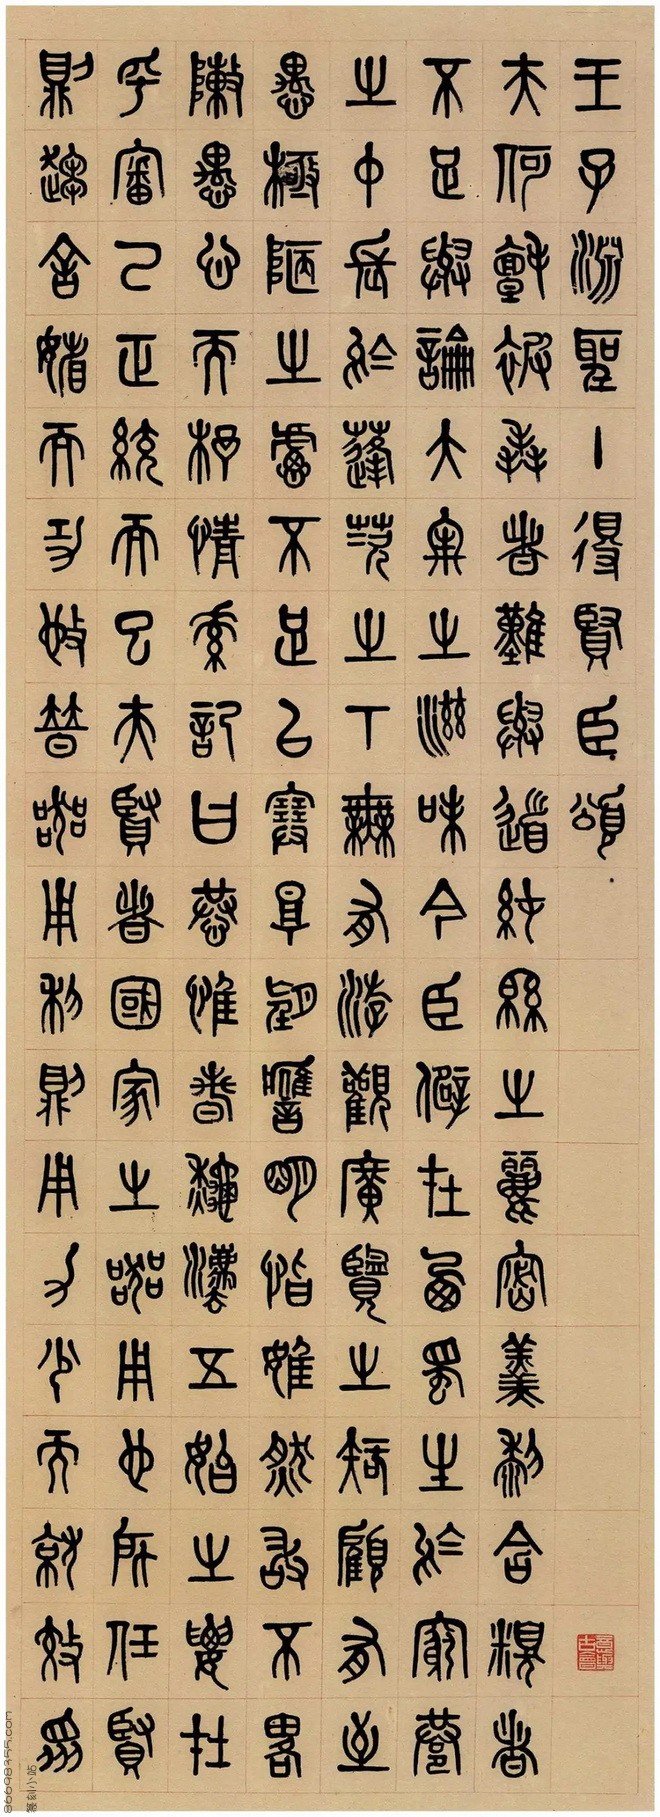 王子淵聖主得賢臣頌
夫何氈被毳者難與道純緜之麗密羹藜含糗者
不足與論大牢之滋味今臣僻在西蜀生於窮巷
之中長於蓬茨之下無有游觀廣覽之知顧有至
愚極陋之累不足以塞厚望應明指雖然敢不略
陳愚心而抒情素記曰恭惟春秋灋五始之要在
乎審己正統而已夫賢者國家之器用也所任賢
則趨舍省而功施普器用利則用力少而就效眾
意與古會
86698355.com
篆刻小站